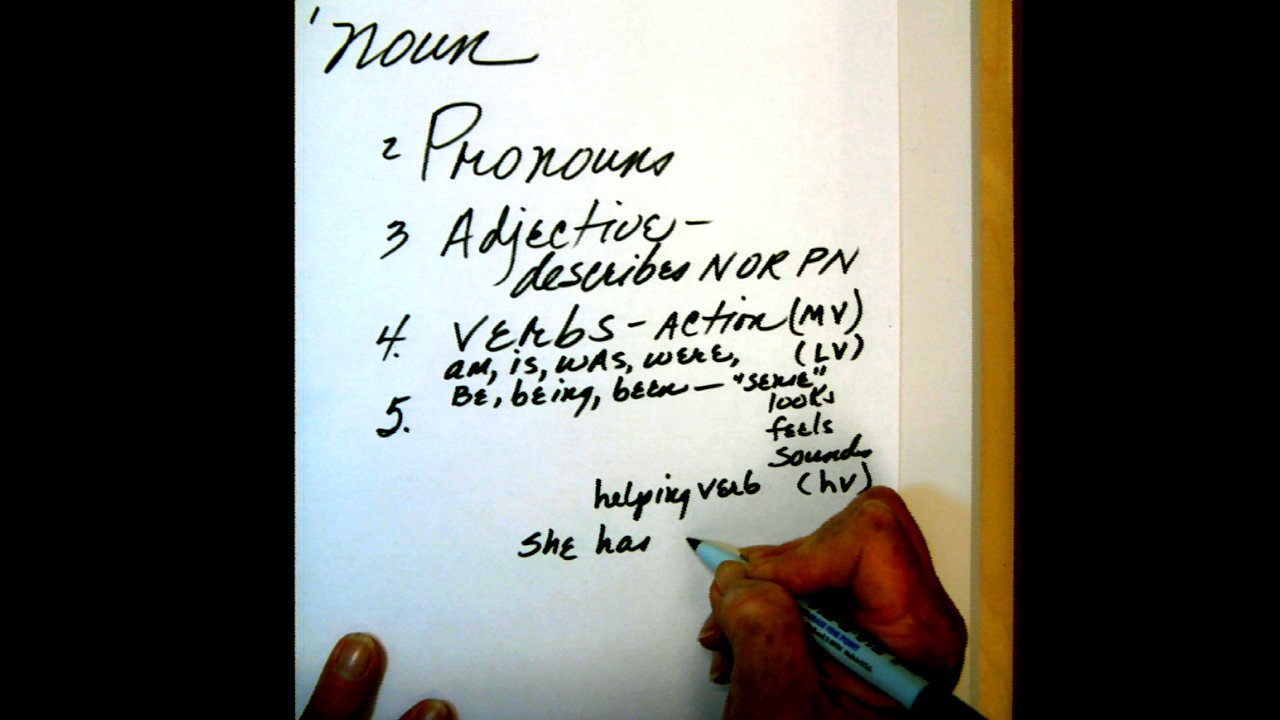 1 noun
2 Pronouns
3 Adjective -
describes N OR PN
4. VERbS - ACtion (MV)
am, is, wAs, wERE, (LV)
BE, bEing, bEEn — "SENSE"
5. looks
fEEls
sounds
helping vErb (hv)
She has